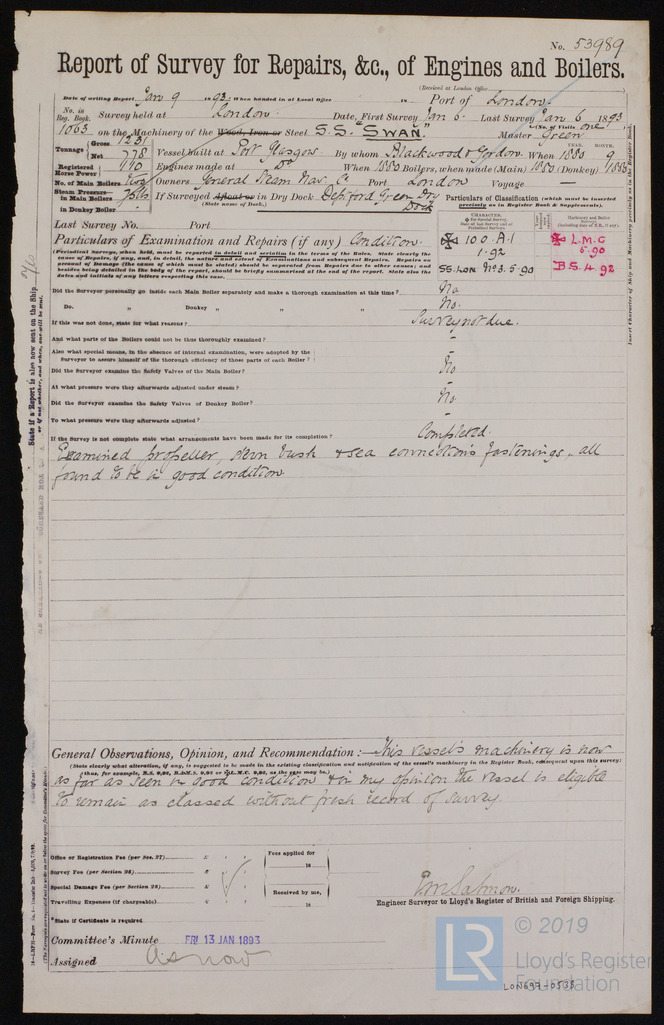 No. 53989
Report of Survey for Repairs, &c., of Engines and Boilers.
(Received at London Office
Date of writing Report Jan 9 1893 When handed in at Local Office 18 Port of London.
No. in Reg. Book. Survey held at London. Date, First Survey Jan 6. Last Survey Jan 6 1893
(No. of Visits one)
1063 on the Machinery of the Wood, Iron or Steel S.S. "SWAN." Master Green
Tonnage Gross 1231
Net 778
Vessel built at Port Glasgow By whom Blackwood & Gordon. When 1880 9
YEAR. MONTH.
Registered Horse Power 190 Engines made at Do When 1880 Boilers, when made (Main) 1880 (Donkey) 1888
No. of Main Boilers Two Owners General Steam Nav. Co Port London Voyage —
Steam Pressure in Main Boilers
in Donkey Boiler
If Surveyed Afloat or in Dry Dock Deptford Green Dry Dock
(State name of Dock.)
Particulars of Classification (which must be inserted precisely as in Register Book & Supplements).
Last Survey No. Port
Particulars of Examination and Repairs (if any) Condition.
(Periodical Surveys, when held, must be reported in detail and seriatim in the terms of the Rules. State clearly the
cause of Repairs, if any, and, in detail, the nature and extent of Examinations and subsequent Repairs. Repairs on
account of Damage (the cause of which must be stated) should be separated from Repairs due to other causes; and
besides being detailed in the body of the report, should be briefly summarised at the end of the report. State also the
dates and initials of any letters respecting this case.)
CHARACTER.
Machinery and Boiler Surveys
100 A.1
1.92
SS.LON No3. 5.90
L.M.C
5.90
B.S. 4.92
Did the Surveyor personally go inside each Main Boiler separately and make a thorough examination at this time? No
Do. " Donkey " " " No.
If this was not done, state for what reasons? Survey not due.
And what parts of the Boilers could not be thoroughly examined? -
Also what special means, in the absence of internal examination, were adopted by the
Surveyor to assure himself of the thorough efficiency of those parts of each Boiler? -
Did the Surveyor examine the Safety Valves of the Main Boiler? No
At what pressure were they afterwards adjusted under steam? -
Did the Surveyor examine the Safety Valves of Donkey Boiler? No.
To what pressure were they afterwards adjusted? -
If the Survey is not complete state what arrangements have been made for its completion? Completed.
Examined propeller, stern bush & sea connections fastenings, all
found to be in good condition
General Observations, Opinion, and Recommendation :— This vessel's machinery is now
(State clearly what alteration, if any, is suggested to be made in the existing classification and notification of the vessel's machinery in the Register Book, consequent upon this survey;
thus, for example, B.S. 9,92, B.&M.S. 9,92 or L.M.C. 9,92, as the case may be.)
as far as seen in good condition & in my opinion the vessel is eligible
to remain as classed without fresh record of survey.
Office or Registration Fee (per Sec. 27)
Survey Fee (per Section 28)
Special Damage Fee (per Section 28)
Travelling Expenses (if chargeable)
Fees applied for
18
Received by me,
18
*State if Certificate is required
Salmon.
Engineer Surveyor to Lloyd's Register of British and Foreign Shipping.
Committee's Minute FRI 13 JAN 1893
Assigned as now
LR
© 2019
Lloyd's Register
Foundation
LON697-0535